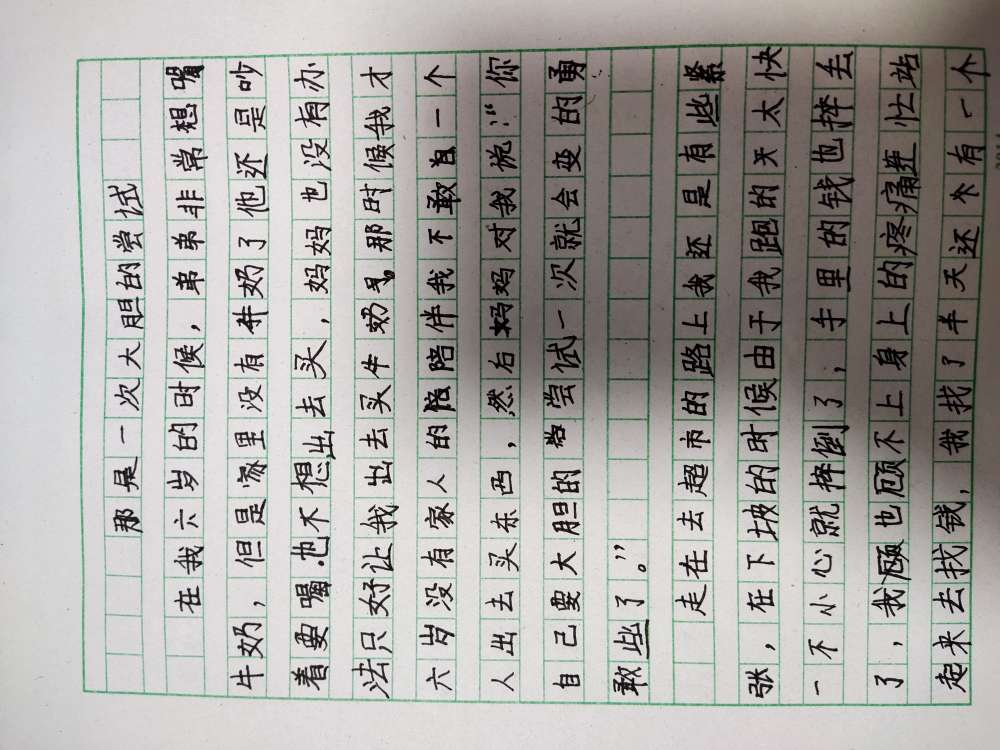 那是一次大胆的尝试
在我六岁的时候，弟弟非常想喝
牛奶，但是家里没有牛奶了他还是吵
着要喝.也不想出去买，妈妈也没有办
法只好让我出去买牛奶，那时候我才
六岁没有家人的陪陪伴我不敢自一个
人出去买东西，然后妈妈对我说：“你
自己要大胆的尝尝试一次就会变的勇
敢些了。”
走在去超市的路上我还是有些紧
张，在下坡的时候由于我跑的天太快
一不小心就摔倒了，手里的钱也摔丢
了，我顾也顾不上身上的疼痛赶忙站
起来去找钱，我找了半天还有一个